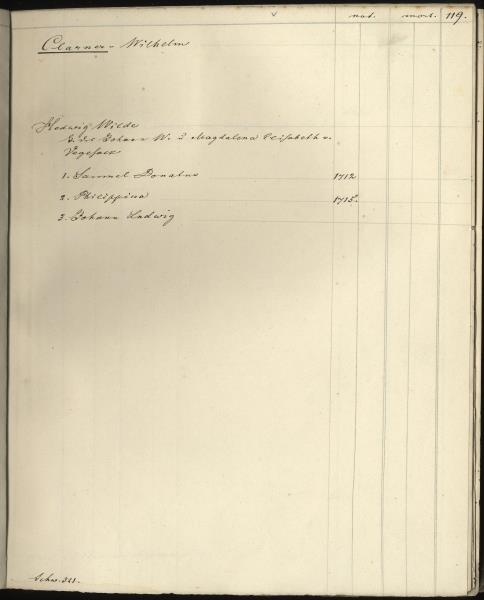 nat. mort. 119.
Clarner - Wilhelm
Hedwig Wilde
Johann W. & Magdalena Elisabeth v.
Vegesack
1. Samuel Donatus 1712
2. Philippina 1715.
3. Johann Ludwig
Schw. 321.